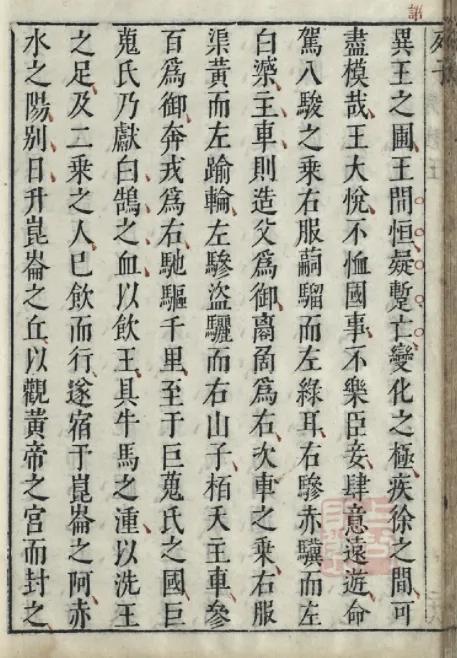 異王之圃王間恒疑蹔亡變化之極疾徐之間可
盡模哉王大悅不恤國事不樂臣妾肆意遠遊命
駕八駿之乘右服騮而左綠耳右驂赤驥而左
白主車則造父爲御爲右次車之乘右服
渠黃而左踰輪左驂盜驪而右山子栢夭主車參
百爲御奔戎爲右馳驅千里至于巨蒐氏之國巨
蒐氏乃獻白鵠之血以飲王具牛馬之湩以洗王
之足及二乘之人已飲而行遂宿于崑崙之阿赤
水之陽别日升崑崙之丘以觀黃帝之宮而封之